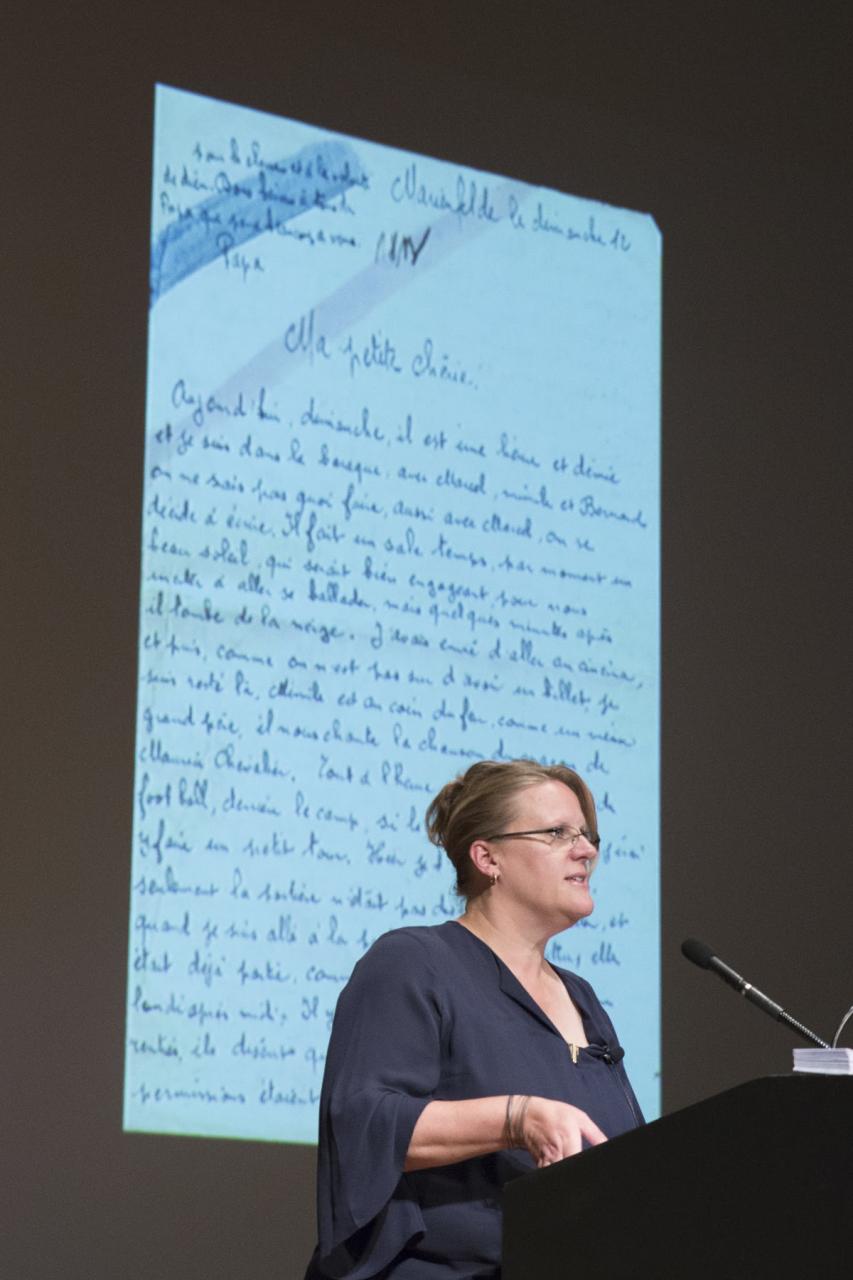 de dieu. Bons baisers à tous de
Papa que pense à vous
Papa
Marienfelde le dimanche 12
Ma petite Chérie.
Aujourd'hui, dimanche, il est une heure et demie
et je suis dans la baraque, avec Marcel, mimile et Bernard
on ne sais pas quoi faire, aussi avec Marcel, on se
décide à écrire. Il fait un sale temps, par moment un
beau soleil, qui serait bien engageant pour nous
inviter à aller se ballader, mais quelques minutes après
il tombe de la neige. J'avais envie d'aller au cinéma,
et puis, comme on n'est pas sur d'avoir un billet, je
suis resté là, Mimile est au coin du feu, comme un vieux
grand père, il nous chante la chanson de
Maurice Chevalier. Tout à l'heure
foot ball, derrière le camp, si le
y faire un petit tour. Hier je
seulement la sortie n'était pas et
quand je suis allé à la elle
était déjà partie,
lundi après midi. Il y
rentrés, ils disent
permissions étaient